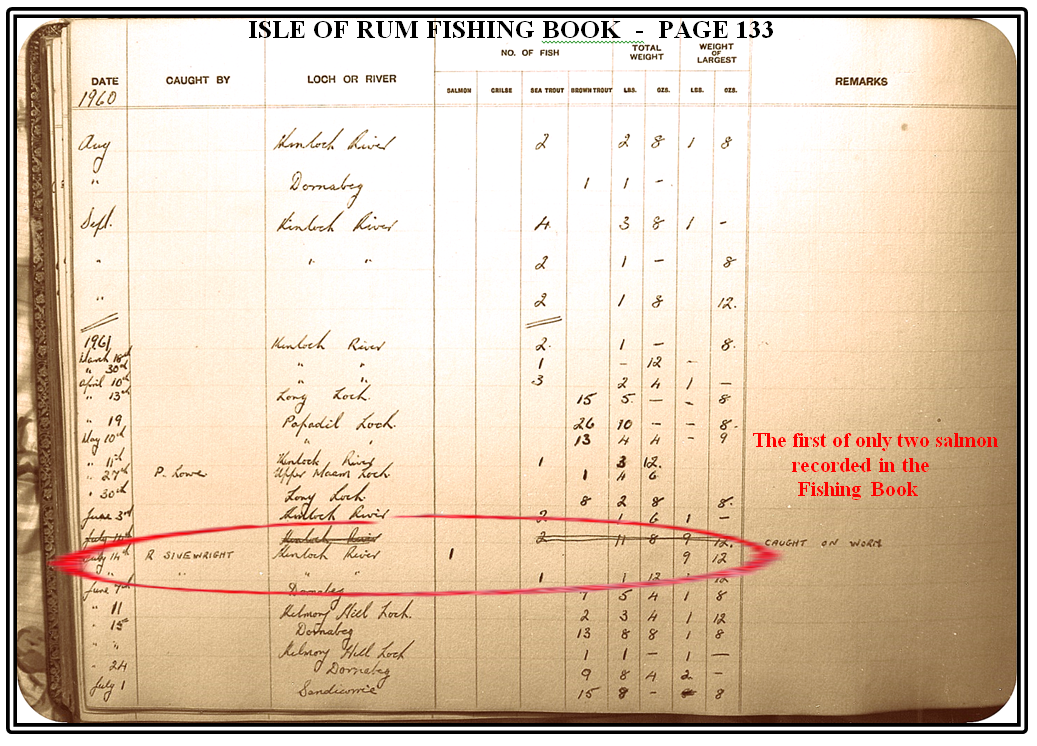 ISLE OF RUM FISHING BOOK - PAGE 133
DATE CAUGHT BY LOCH OR RIVER NO. OF FISH TOTAL WEIGHT WEIGHT OF LARGEST REMARKS
SALMON GRILSE SEA TROUT BROWN TROUT LBS. OZS. LBS. OZS.
1960
Aug Kinloch River 2 2 8 1 8
" Dornabeg 1 1 -
Sept. Kinloch River 4 3 8 1 -
" " " 2 1 - 8
" 2 1 8 12.
1961 Kinloch River 2. 1 - 8.
March 18th " " 1 - 12 -
" 30th " " 3 2 4 1 -
April 10th
" 13th Long Loch. 15 5. - - 8
" 19 Papadil Loch. 26 10 - - 8.
May 10th " " 13 4 4 - 9
" 11th Kinloch River 1 3 12.
" 27th P. Lowe Upper Maam Loch 1 4 6
" 30th Long Loch 8 2 8 8.
June 3rd Kinloch River 2 1 6 1 -
July 14th Kinloch River 2 11 8 9 12. CAUGHT ON WORM
July 14th R SIVEWRIGHT Kinloch River 1 9 12
" " " " 1 1 12 - 12
June 7th Dornabeg 7 5 4 1 8
" 11 Kilmory Hill Loch. 2 3 4 1 12
" 15 Dornabeg 13 8 8 1 8
" " Kilmory Hill Loch 1 1 - 1 -
" 24 Dornabeg 9 8 4 2 -
July 1 Sandicorrie 15 8 - 8
The first of only two salmon
recorded in the
Fishing Book